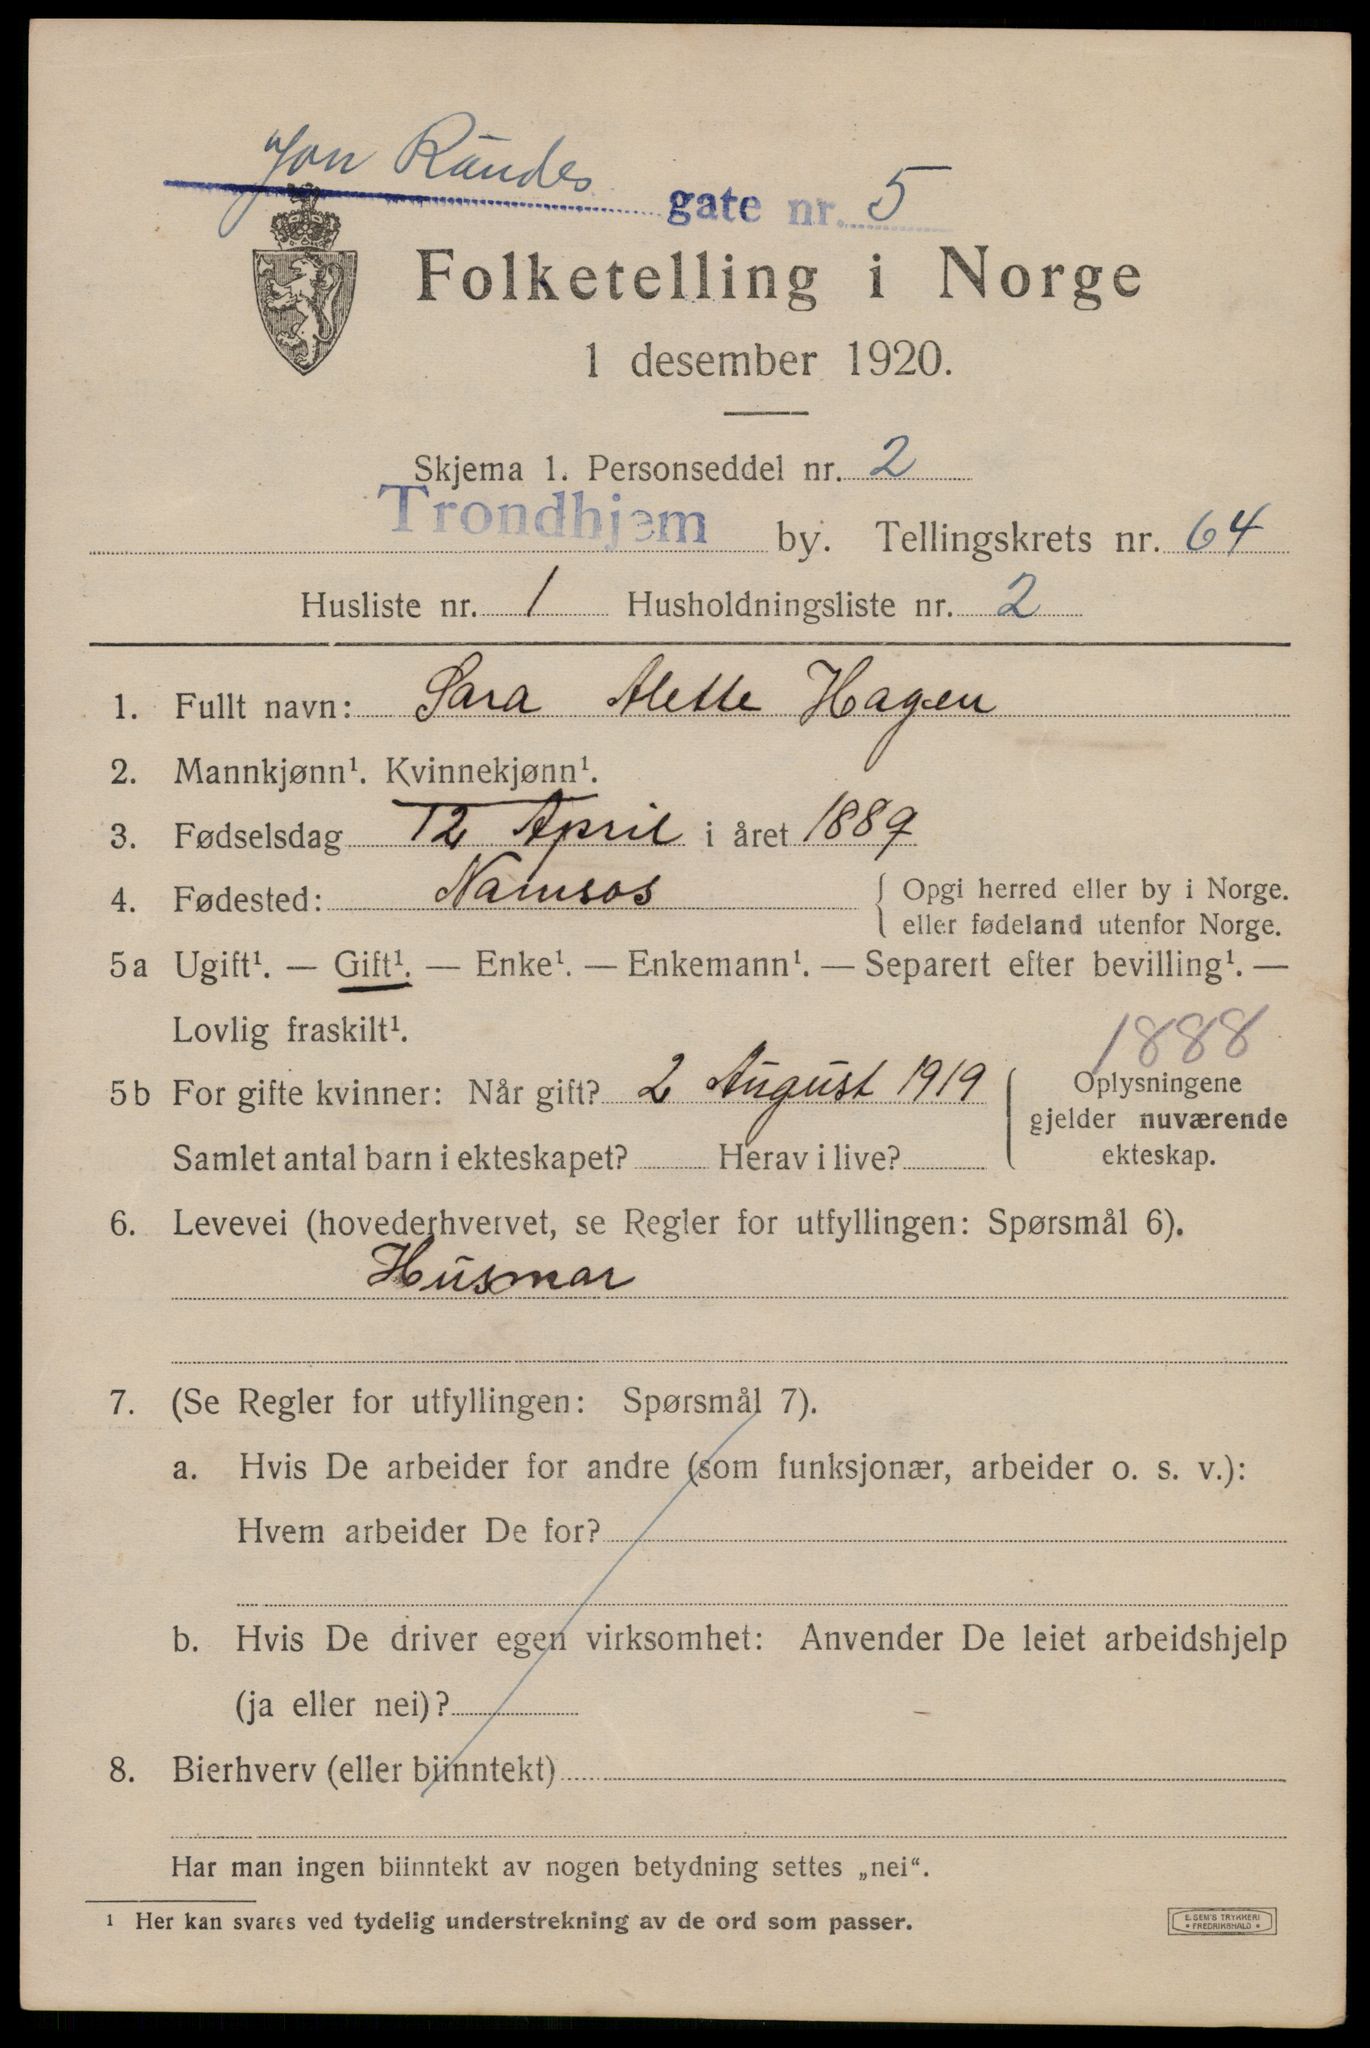 Jon Raudes gate nr. 5
Folketelling i Norge
1 desember 1920.
Skjema 1. Personseddel nr. 2
Trondhjem by. Tellingskrets nr. 64
Husliste nr. 1 Husholdningsliste nr. 2
1. Fullt navn: Sara Alette Hagen
2. Mannkjønn¹. Kvinnekjønn¹.
3. Fødselsdag 12 April i året 1889
4. Fødested: Namsos { Opgi herred eller by i Norge.
eller fødeland utenfor Norge.
5a Ugift¹. — Gift¹. — Enke¹. — Enkemann¹. — Separert efter bevilling¹. —
Lovlig fraskilt¹.
1888
5b For gifte kvinner: Når gift? 2 August 1919 { Oplysningene
gjelder nuværende
Samlet antal barn i ekteskapet? Herav i live? ekteskap.
6. Levevei (hovederhvervet, se Regler for utfyllingen: Spørsmål 6).
Husmor
7. (Se Regler for utfyllingen: Spørsmål 7).
a. Hvis De arbeider for andre (som funksjonær, arbeider o. s. v.):
Hvem arbeider De for?
b. Hvis De driver egen virksomhet: Anvender De leiet arbeidshjelp
(ja eller nei)?
8. Bierhverv (eller biinntekt)
Har man ingen biinntekt av nogen betydning settes „nei“.
¹ Her kan svares ved tydelig understrekning av de ord som passer.
E. SEM'S TRYKKERI
* FREDRIKSHALD *